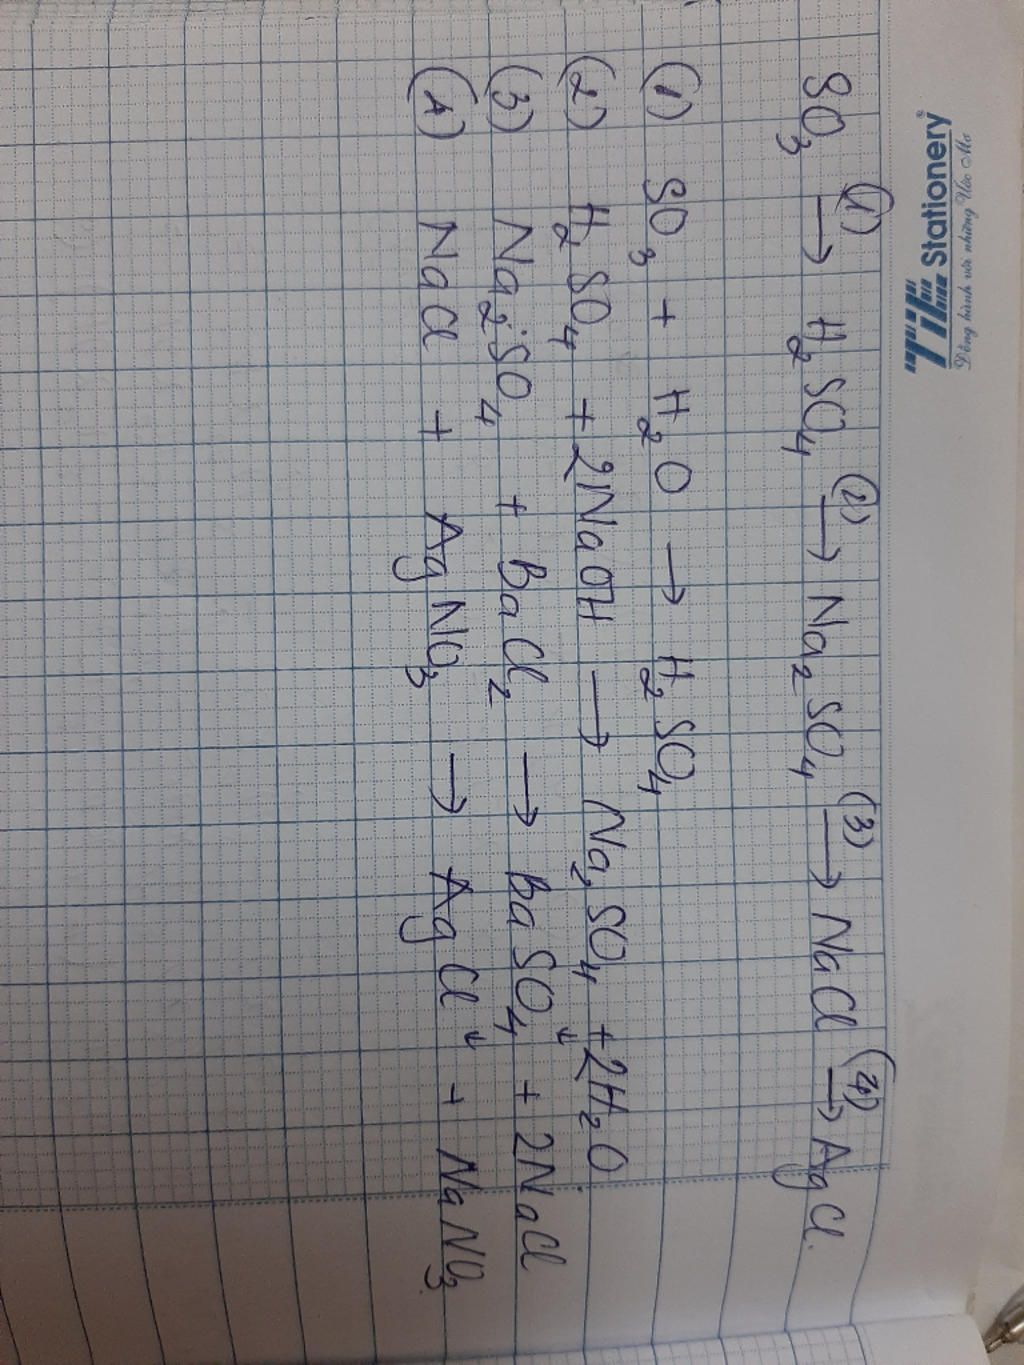 TIE Stationery®
Đồng hành với những Ước Mơ
SO₃ (1)→ H₂SO₄ (2)→ Na₂SO₄ (3)→ NaCl (4)→ AgCl.
(1) SO₃ + H₂O → H₂SO₄
(2) H₂SO₄ + 2NaOH → Na₂SO₄ + 2H₂O
(3) Na₂SO₄ + BaCl₂ → BaSO₄↓ + 2NaCl
(4) NaCl + AgNO₃ → AgCl↓ + NaNO₃